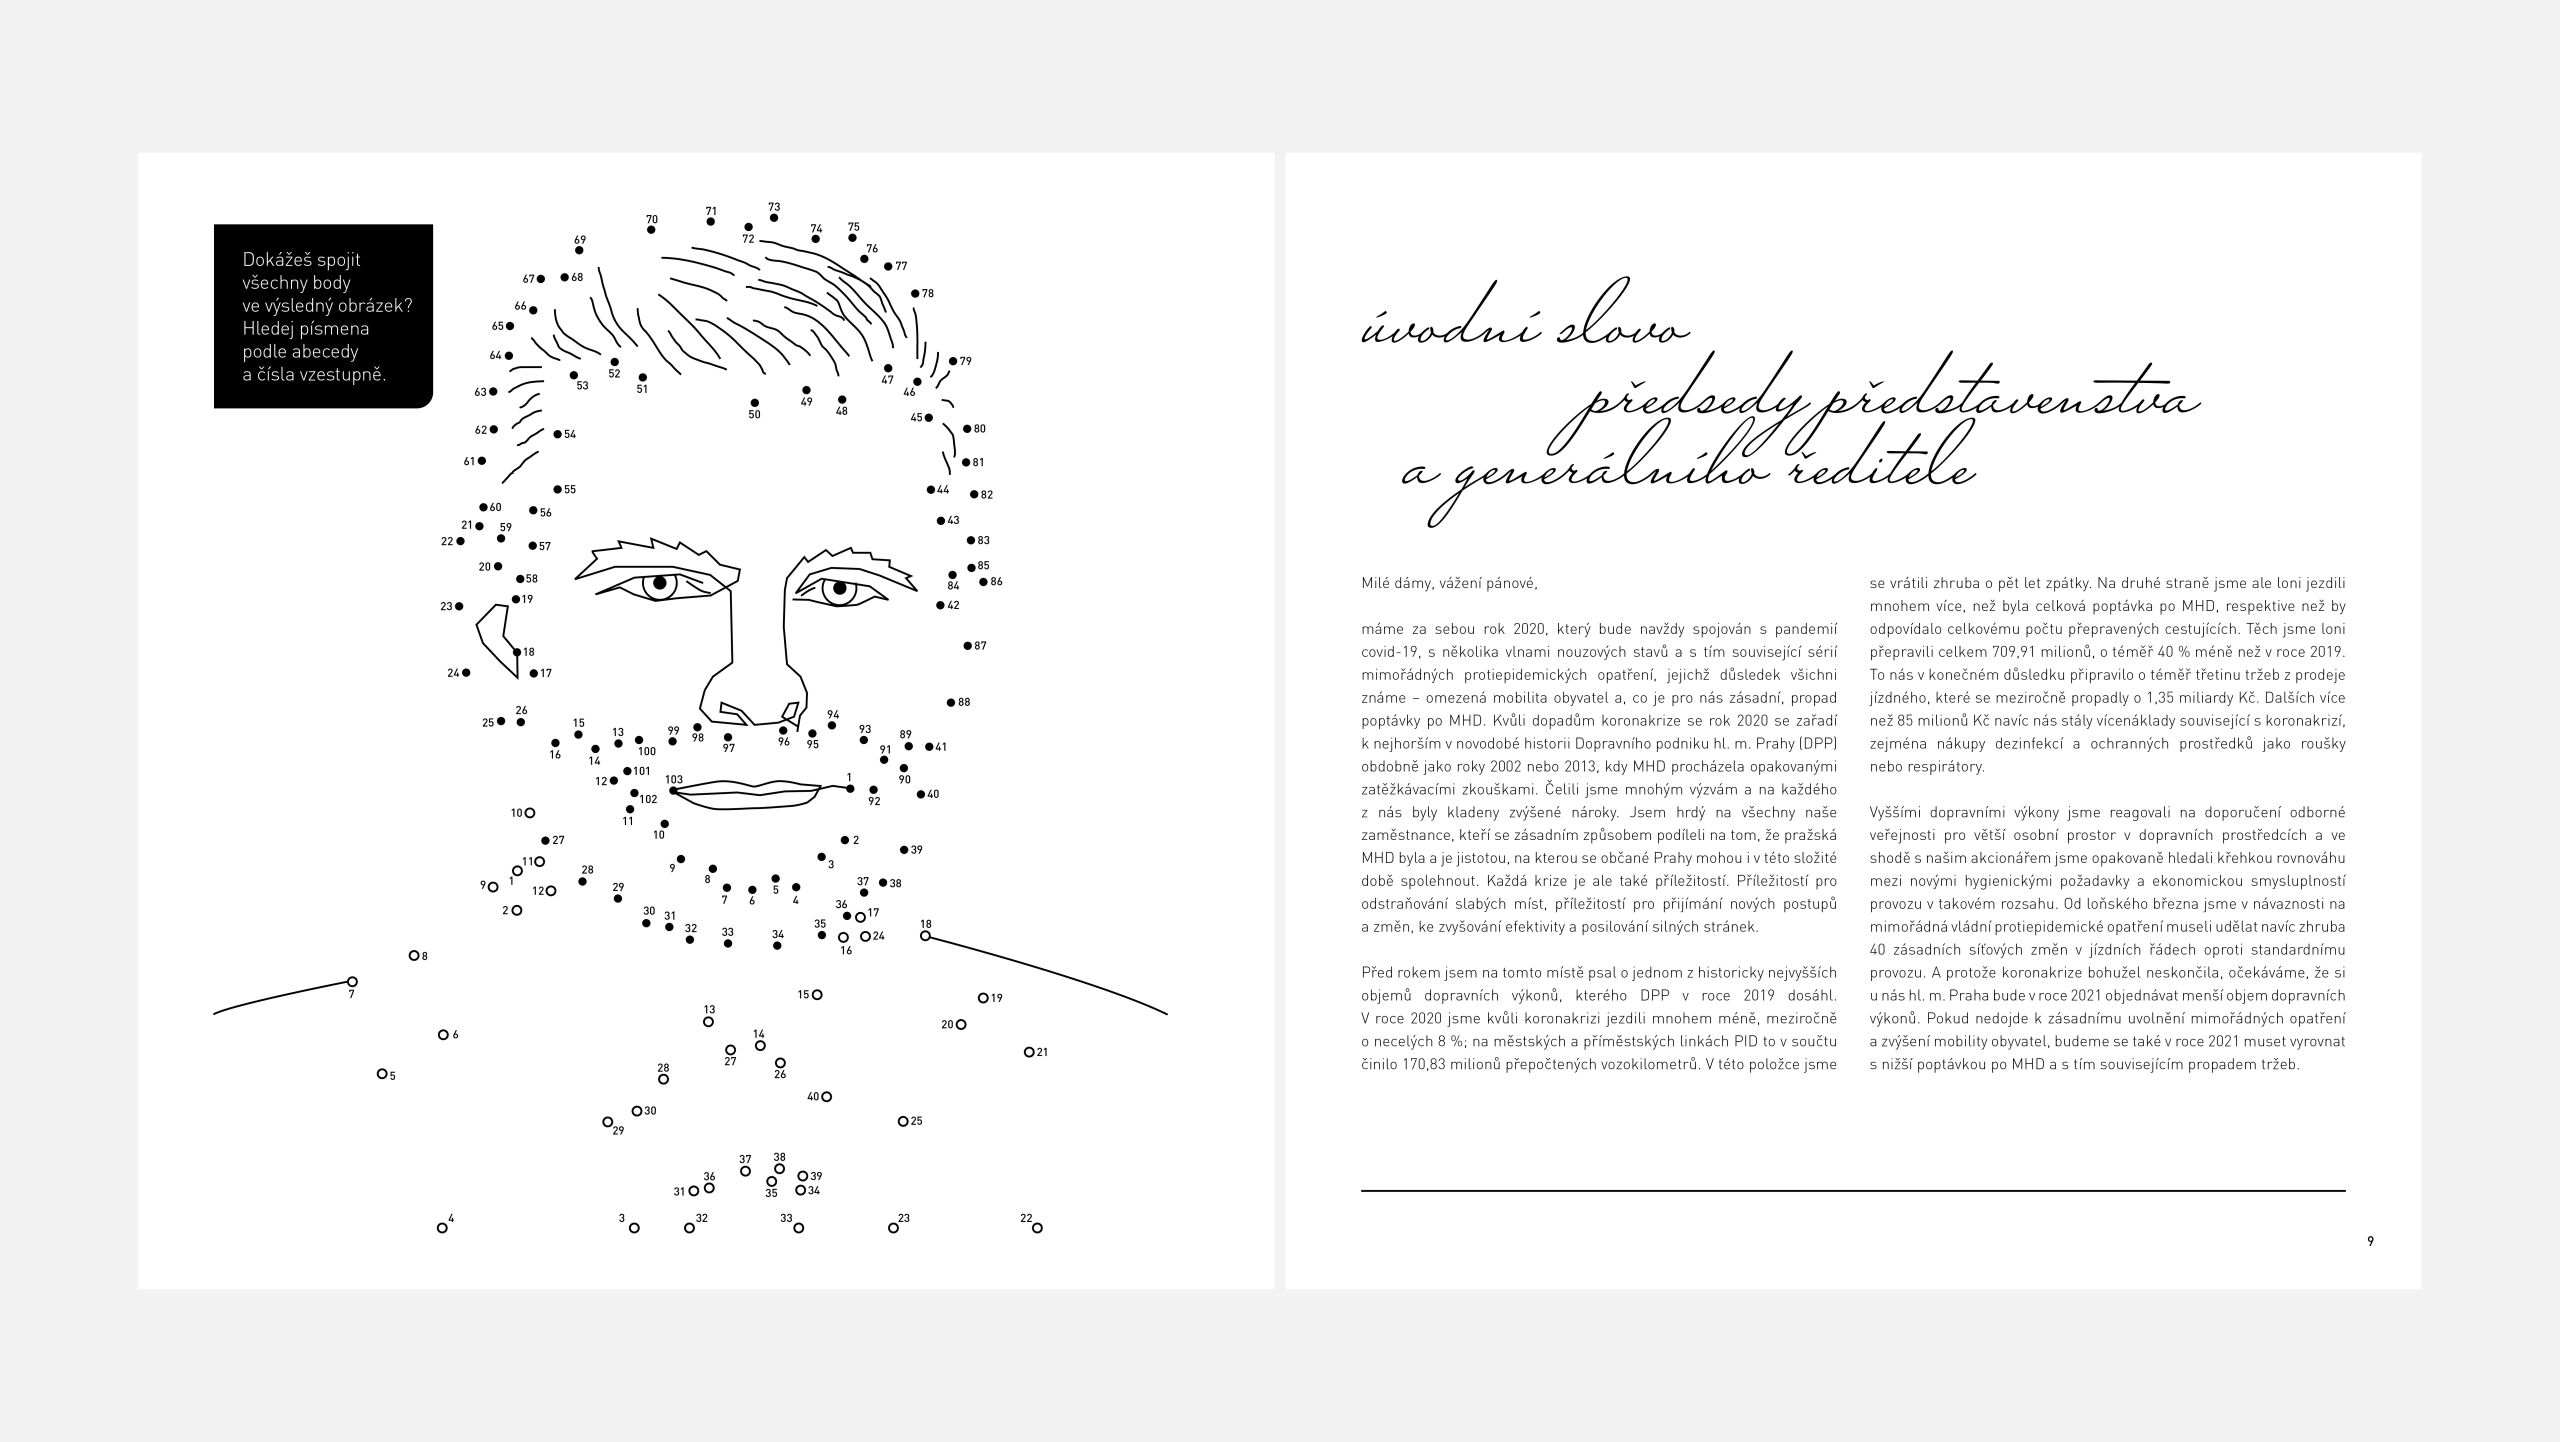 Dokážeš spojit
všechny body
ve výsledný obrázek?
Hledej písmena
podle abecedy
a čísla vzestupně.
73
71
70
72
74
75
69
76
77
67
68
78
66
65
64
79
52
53
51
47
46
63
50
49
48
45
62
54
80
61
81
55
44
82
60
56
21
59
43
22
57
83
20
85
58
84
86
19
23
42
18
87
24
17
88
26
25
15
13
99
98
94
93
89
16
14
100
97
96
95
91
41
101
12
103
1
90
102
92
40
10
11
10
27
2
39
11
9
3
28
8
9
1
12
29
7
6
5
4
37
38
2
30
31
36
17
32
33
34
35
18
16
24
8
7
15
19
13
20
6
14
27
21
5
28
26
40
30
29
25
37
38
36
39
31
35
34
4
3
32
33
23
22
úvodní slovo
předsedy představenstva
a generálního ředitele
Milé dámy, vážení pánové,
máme za sebou rok 2020, který bude navždy spojován s pandemií
covid-19, s několika vlnami nouzových stavů a s tím související sérií
mimořádných protiepidemických opatření, jejichž důsledek všichni
známe – omezená mobilita obyvatel a, co je pro nás zásadní, propad
poptávky po MHD. Kvůli dopadům koronakrize se rok 2020 se zařadí
k nejhorším v novodobé historii Dopravního podniku hl. m. Prahy (DPP)
obdobně jako roky 2002 nebo 2013, kdy MHD procházela opakovanými
zatěžkávacími zkouškami. Čelili jsme mnohým výzvám a na každého
z nás byly kladeny zvýšené nároky. Jsem hrdý na všechny naše
zaměstnance, kteří se zásadním způsobem podíleli na tom, že pražská
MHD byla a je jistotou, na kterou se občané Prahy mohou i v této složité
době spolehnout. Každá krize je ale také příležitostí. Příležitostí pro
odstraňování slabých míst, příležitostí pro přijímání nových postupů
a změn, ke zvyšování efektivity a posilování silných stránek.
Před rokem jsem na tomto místě psal o jednom z historicky nejvyšších
objemů dopravních výkonů, kterého DPP v roce 2019 dosáhl.
V roce 2020 jsme kvůli koronakrizi jezdili mnohem méně, meziročně
o necelých 8 %; na městských a příměstských linkách PID to v součtu
činilo 170,83 milionů přepočtených vozokilometrů. V této položce jsme
se vrátili zhruba o pět let zpátky. Na druhé straně jsme ale loni jezdili
mnohem více, než byla celková poptávka po MHD, respektive než by
odpovídalo celkovému počtu přepravených cestujících. Těch jsme loni
přepravili celkem 709,91 milionů, o téměř 40 % méně než v roce 2019.
To nás v konečném důsledku připravilo o téměř třetinu tržeb z prodeje
jízdného, které se meziročně propadly o 1,35 miliardy Kč. Dalších více
než 85 milionů Kč navíc nás stály vícenáklady související s koronakrizí,
zejména nákupy dezinfekcí a ochranných prostředků jako roušky
nebo respirátory.
Vyššími dopravními výkony jsme reagovali na doporučení odborné
veřejnosti pro větší osobní prostor v dopravních prostředcích a ve
shodě s našim akcionářem jsme opakovaně hledali křehkou rovnováhu
mezi novými hygienickými požadavky a ekonomickou smysluplností
provozu v takovém rozsahu. Od loňského března jsme v návaznosti na
mimořádná vládní protiepidemické opatření museli udělat navíc zhruba
40 zásadních síťových změn v jízdních řádech oproti standardnímu
provozu. A protože koronakrize bohužel neskončila, očekáváme, že si
u nás hl. m. Praha bude v roce 2021 objednávat menší objem dopravních
výkonů. Pokud nedojde k zásadnímu uvolnění mimořádných opatření
a zvýšení mobility obyvatel, budeme se také v roce 2021 muset vyrovnat
s nižší poptávkou po MHD a s tím souvisejícím propadem tržeb.
9